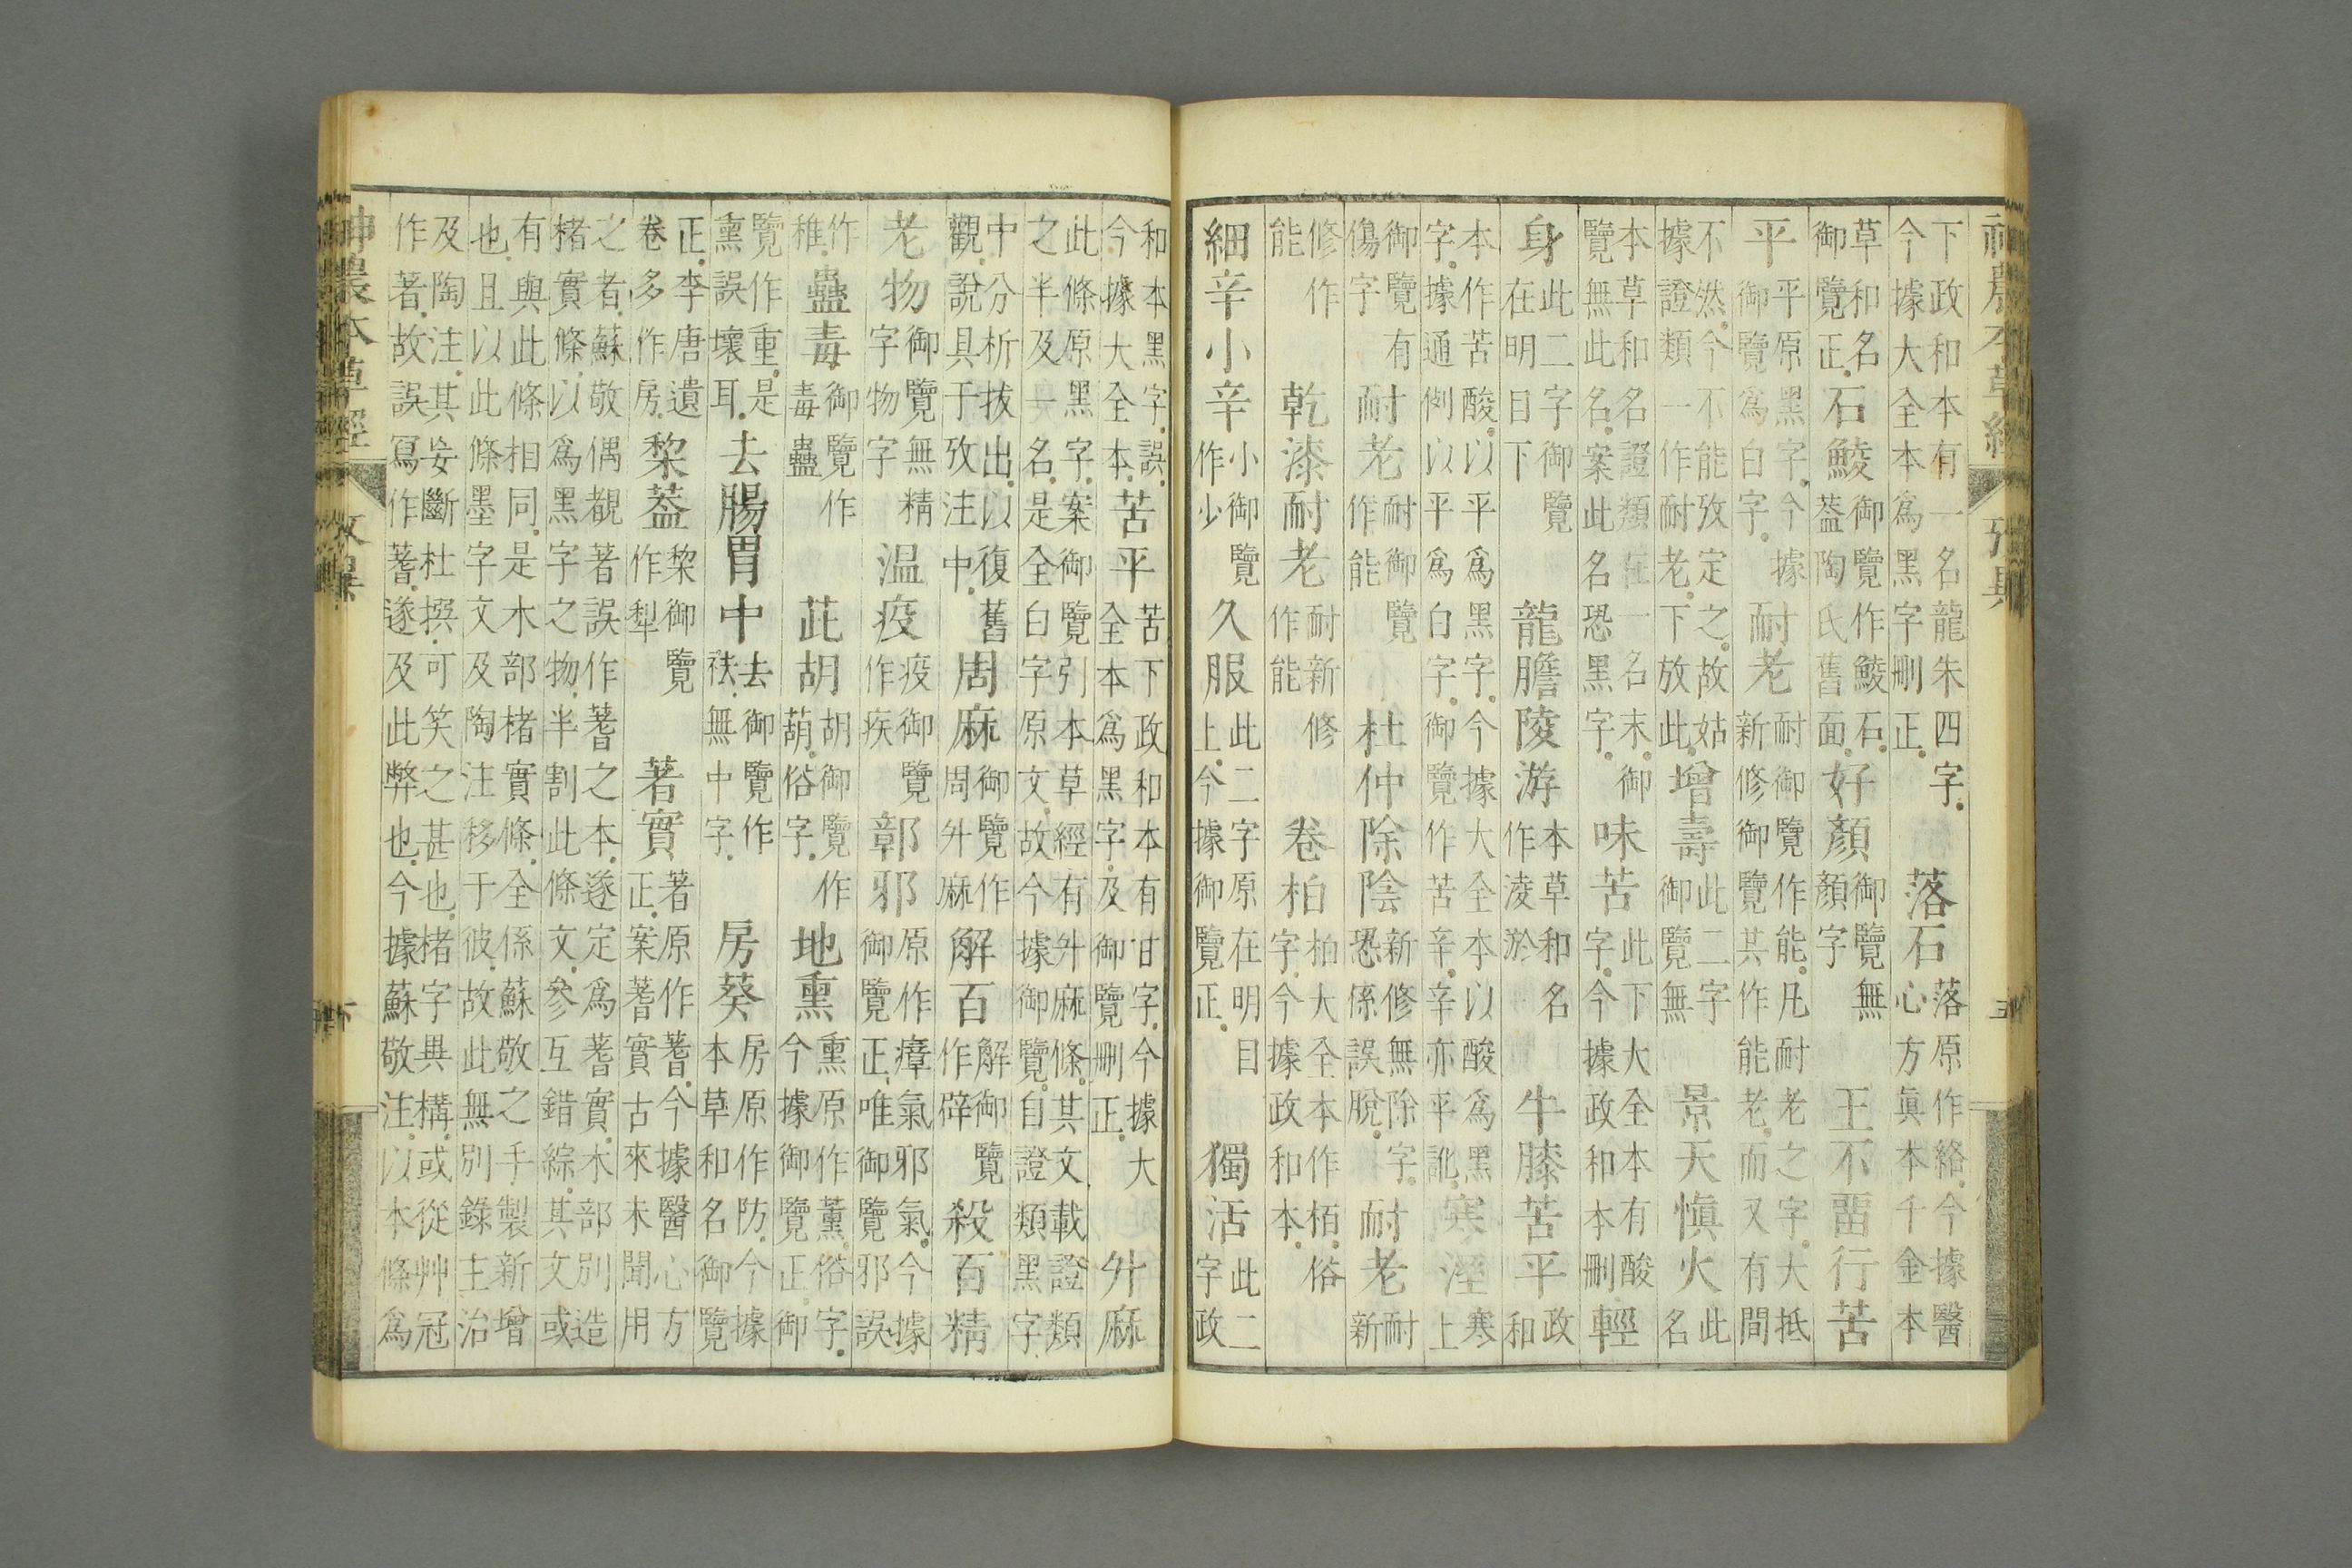 神農本草經 攷異 五
下政和本有一名龍朱四字。今據大全本爲黑字刪正。落石落原作絡。今據醫心方眞本千金本
草和名御覽正。石鯪御覽作鯪石。葢陶氏舊面。好顏御覽無顏字王不畱行苦
平平原黑字。今據御覽爲白字。耐老耐御覽作能。凡耐老之字。大抵新修御覽其作能老。而又有間
不然。今不能攷定之。故姑據證類一作耐老。下放此。增壽此二字御覽無景天愼火此名
本草和名證類在一名末。御覽無此名。案此名恐黑字。味苦此下大全本有酸字。今據政和本刪輕
身此二字御覽在明目下龍膽陵游本草和名作淩於牛膝苦平政和
本作苦酸。以平爲黑字。今據大全本以酸爲黑字。據通例以平爲白字。御覽作苦辛。辛亦平訛。寒溼寒上
御覽有傷字耐老耐御覽作能杜仲除陰新修無除字。恐係誤脫。耐老耐新
修作能乾漆耐老耐新修作能卷柏柏大全本作栢。俗字。今據政和本。
細辛小辛小御覽作少久服此二字原在明目上。今據御覽正。獨活此二字政
和本黑字。誤今據大全本。苦平苦下政和本有甘字。今據大全本爲黑字。及御覽刪正。升麻
此條原黑字。案御覽引本草經有升麻條。其文載證類之半及一名。是全白字原文。故今據御覽。自證類黑字
中分析拔出。以復舊觀。說具于攷注中。周麻御覽作周升麻解百解御覽作辟殺百精
老物御覽無精字物字温疫疫御覽作疾鄣邪原作瘴氣邪氣。今據御覽正。唯御覽邪誤
作稚蠱毒御覽作毒蠱茈胡胡御覽作葫。俗字。地熏熏原作薰。俗字。今據御覽正。御
覽作重。是熏誤壞耳。去腸胃中去御覽作祛。無中字。房葵房原作防。今據本草和名御覽
正。李唐遺卷多作房。棃葢棃御覽作犁著實著原作蓍。今據醫心方正。案蓍實古來未聞用
之者。蘇敬偶覩著誤作蓍之本。遂定爲蓍實。木部別造楮實條。以爲黑字之物。半割此條文。參互錯綜。其文或
有與此條相同。是木部楮實條。全係蘇敬之手製新增也。且以此條墨字文及陶注。移于彼。故此無別錄主治
及陶注。其妄斷杜撰。可笑之甚也。楮字異構。或從艸冠作著。故誤寫作蓍。遂及此弊也。今據蘇敬注。以本條爲
神農本草經 攷異